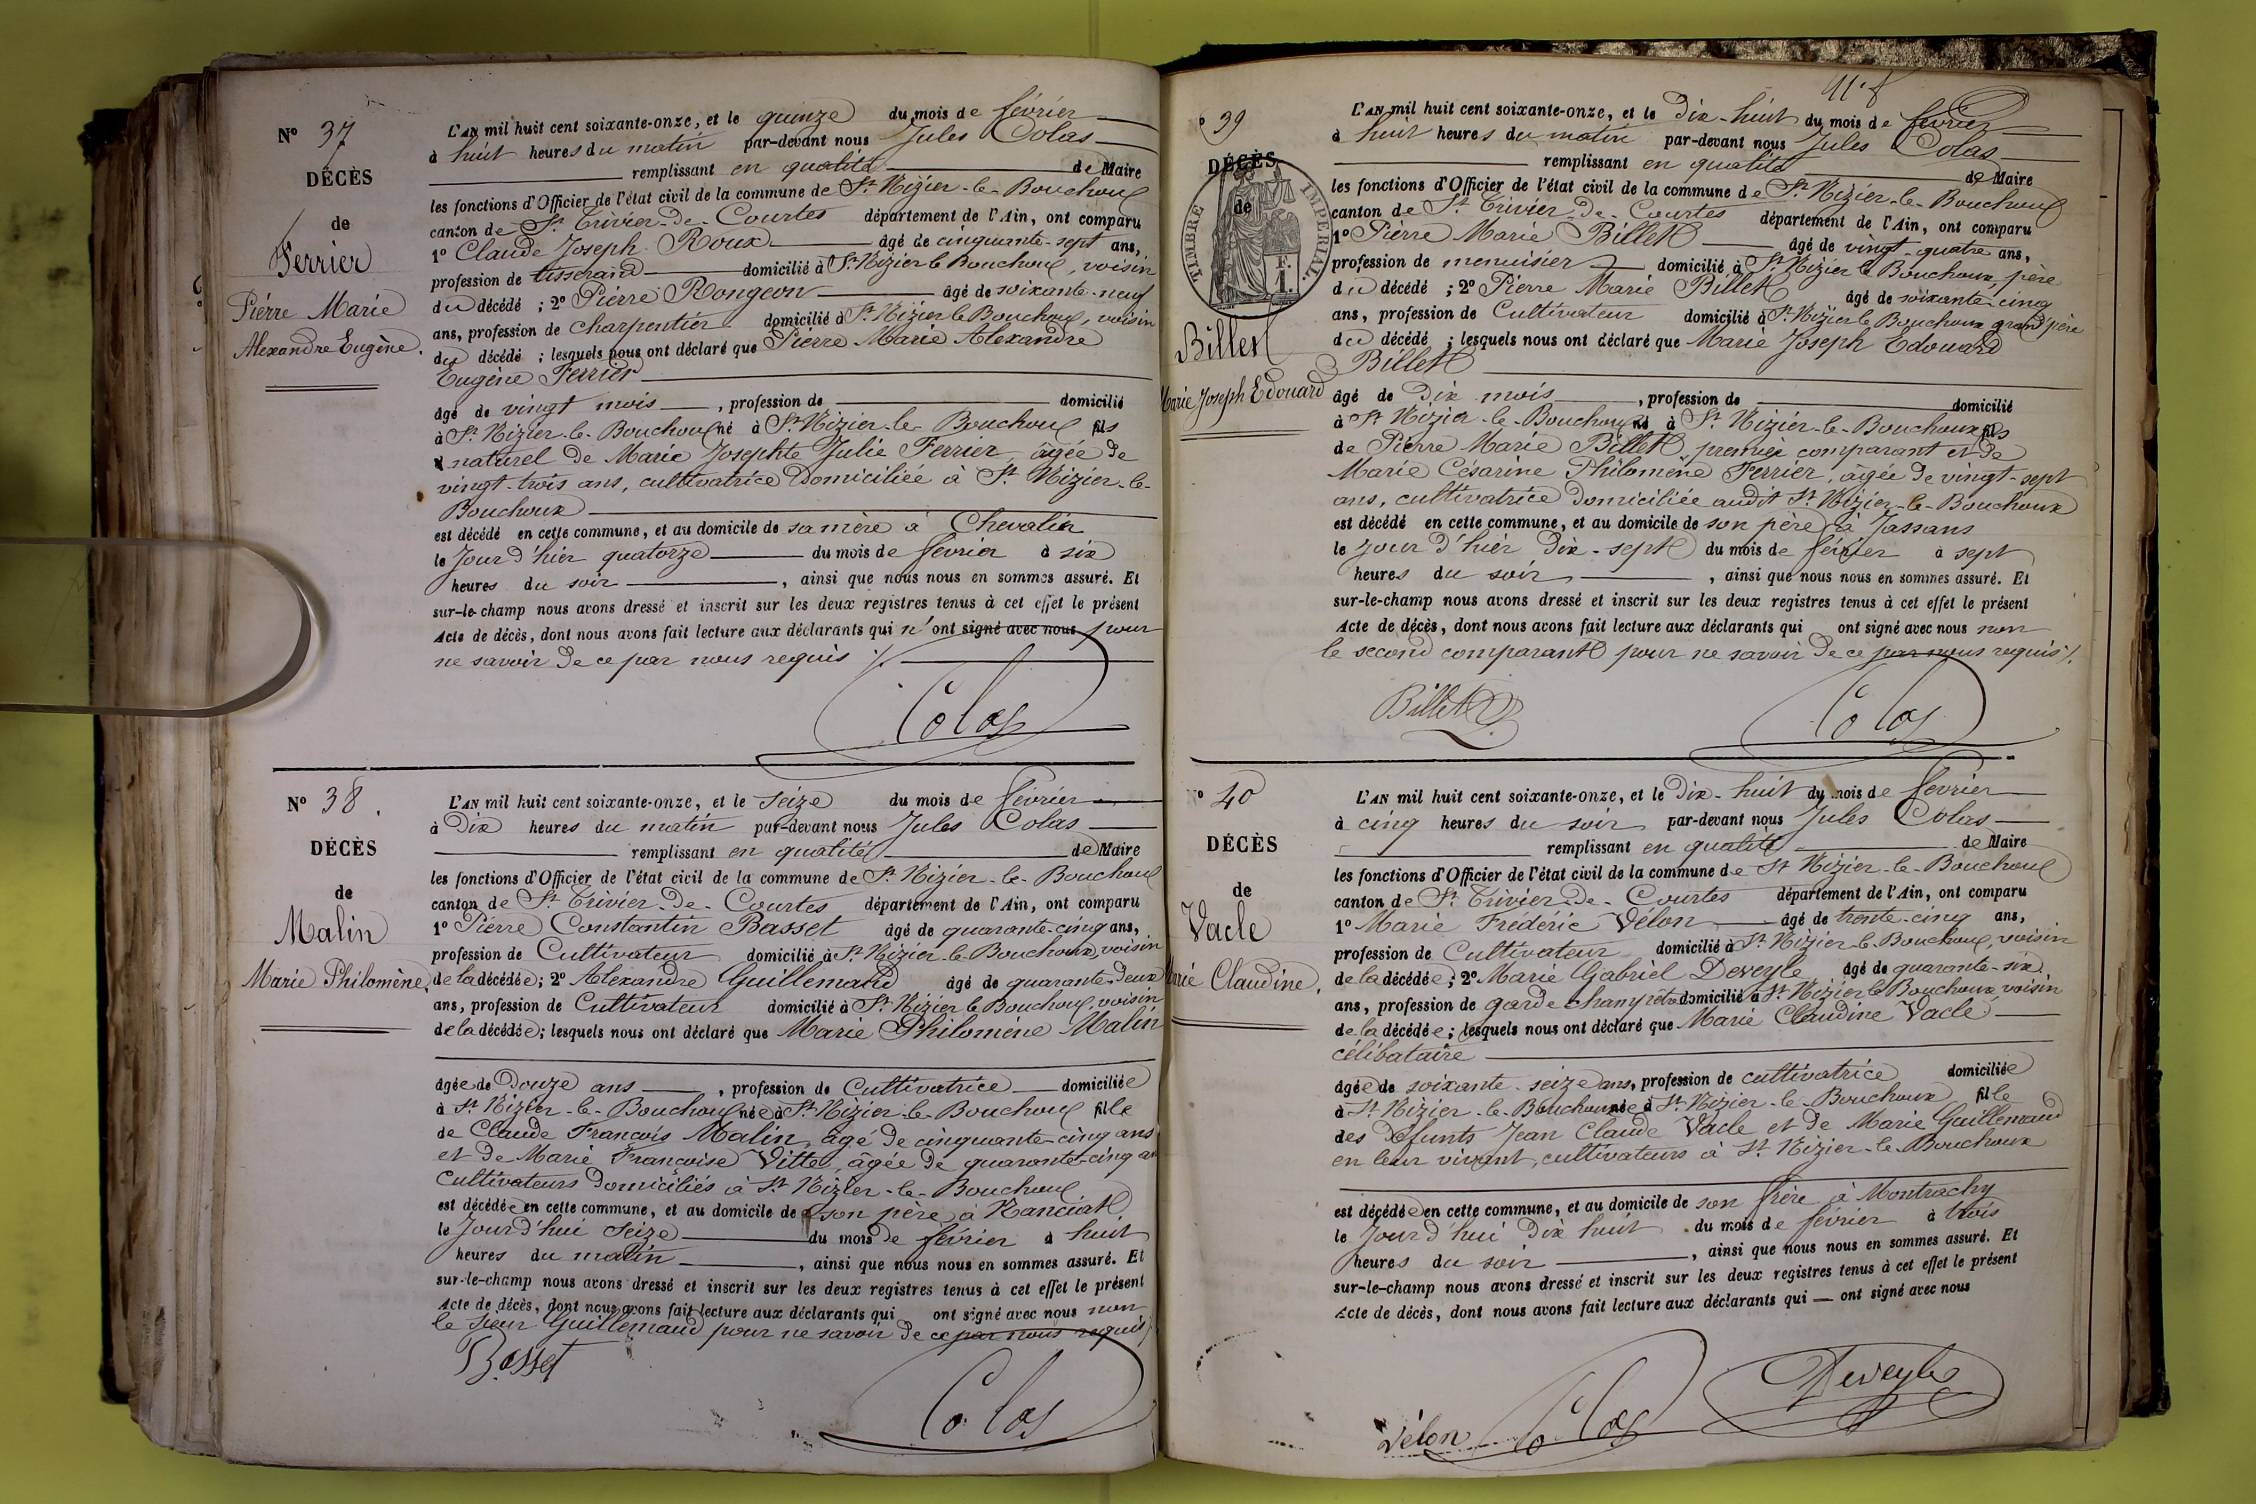 N° 37
DÉCÈS
de
Ferrier
Pierre Marie
Alexandre Eugène.
L'AN mil huit cent soixante-onze, et le quinze du mois de février
à huit heures du matin par-devant nous Jules Colas
remplissant en qualité de Maire
les fonctions d'Officier de l'état civil de la commune de St Nizier-le-Bouchoux
canton de St Trivier-de-Courtes département de l'Ain, ont comparu
1° Claude Joseph Roux âgé de cinquante-sept ans,
profession de tisserand domicilié à St Nizier le Bouchoux, voisin
du décédé ; 2° Pierre Rongeon âgé de soixante-neuf
ans, profession de charpentier domicilié à St Nizier le Bouchoux, voisin
du décédé ; lesquels nous ont déclaré que Pierre Marie Alexandre
Eugène Ferrier
âgé de vingt mois, profession de domicilié
à St Nizier-le-Bouchoux né à St Nizier-le-Bouchoux fils
naturel de Marie Josephte Julie Ferrier, âgée de
vingt-trois ans, cultivatrice domiciliée à St Nizier-le-
Bouchoux
est décédé en cette commune, et au domicile de sa mère à Chevalin
le jour d'hier quatorze du mois de février à six
heures du soir, ainsi que nous nous en sommes assuré. Et
sur-le-champ nous avons dressé et inscrit sur les deux registres tenus à cet effet le présent
Acte de décès, dont nous avons fait lecture aux déclarants qui n'ont signé avec nous pour
ne savoir de ce par nous requis ./.
Colas
N° 38.
DÉCÈS
de
Malin
Marie Philomène.
L'AN mil huit cent soixante-onze, et le seize du mois de février
à dix heures du matin par-devant nous Jules Colas
remplissant en qualité de Maire
les fonctions d'Officier de l'état civil de la commune de St Nizier-le-Bouchoux
canton de St Trivier-de-Courtes département de l'Ain, ont comparu
1° Pierre Constantin Basset âgé de quarante-cinq ans,
profession de Cultivateur domicilié à St Nizier-le-Bouchoux, voisin
de la décédée; 2° Alexandre Guillemaud âgé de quarante-deux
ans, profession de Cultivateur domicilié à St Nizier le Bouchoux, voisin
de la décédée; lesquels nous ont déclaré que Marie Philomène Malin
âgée de Douze ans, profession de Cultivatrice domiciliée
à St Nizier-le-Bouchoux née à St Nizier-le-Bouchoux fille
de Claude François Malin, âgé de cinquante-cinq ans
et de Marie Françoise Vitte, âgée de quarante-cinq an
cultivateurs domiciliés à St Nizier-le-Bouchoux
est décédée en cette commune, et au domicile de son père à Ranciat
le Jourd'hui Seize du mois de février à huit
heures du matin, ainsi que nous nous en sommes assuré. Et
sur-le-champ nous avons dressé et inscrit sur les deux registres tenus à cet effet le présent
Acte de décès, dont nous avons fait lecture aux déclarants qui ont signé avec nous non
le sieur Guillemaud pour ne savoir de ce par nous requis ./.
Basset
Colas
° 39
DÉCÈS
de
TIMBRE IMPÉRIAL.
F.
1.
Billet
Marie Joseph Edouard
L'AN mil huit cent soixante-onze, et le Dix-huit du mois de février
à huit heures du matin par-devant nous Jules Colas
remplissant en qualité de Maire
les fonctions d'Officier de l'état civil de la commune de St Nizier-le-Bouchoux
canton de St Trivier-de-Courtes département de l'Ain, ont comparu
1° Pierre Marie Billet âgé de vingt-quatre ans,
profession de menuisier domicilié à St Nizier le Bouchoux, père
du décédé ; 2° Pierre Marie Billet âgé de soixante-cinq
ans, profession de Cultivateur domicilié à St Nizier le Bouchoux grand père
du décédé ; lesquels nous ont déclaré que Marie Joseph Edouard
Billet
âgé de Dix mois, profession de domicilié
à St Nizier-le-Bouchoux né à St Nizier-le-Bouchoux fils
de Pierre Marie Billet, premier comparant et de
Marie Césarine Philomène Ferrier, âgée de vingt-sept
ans, cultivatrice domiciliée audit St Nizier-le-Bouchoux
est décédé en cette commune, et au domicile de son père à Jassans
le jour d'hier Dix-sept du mois de février à sept
heures du soir, ainsi que nous nous en sommes assuré. Et
sur-le-champ nous avons dressé et inscrit sur les deux registres tenus à cet effet le présent
Acte de décès, dont nous avons fait lecture aux déclarants qui ont signé avec nous non
le second comparant pour ne savoir de ce par nous requis ./.
Billet
Colas
° 40
DÉCÈS
de
Vacle
Marie Claudine.
L'AN mil huit cent soixante-onze, et le Dix-huit du mois de février
à cinq heures du soir par-devant nous Jules Colas
remplissant en qualité de Maire
les fonctions d'Officier de l'état civil de la commune de St Nizier-le-Bouchoux
canton de St Trivier-de-Courtes département de l'Ain, ont comparu
1° Marie Frédéric Vélon âgé de trente-cinq ans,
profession de Cultivateur domicilié à St Nizier-le-Bouchoux, voisin
de la décédée; 2° Marie Gabriel Deveyle âgé de quarante-six
ans, profession de garde champêtre domicilié à St Nizier le Bouchoux, voisin
de la décédée; lesquels nous ont déclaré que Marie Claudine Vacle
célibataire
âgée de soixante-seize ans, profession de cultivatrice domiciliée
à St Nizier-le-Bouchoux née à St Nizier-le-Bouchoux fille
des défunts Jean Claude Vacle et de Marie Guillemaud
en leur vivant, cultivateurs à St Nizier-le-Bouchoux
est décédée en cette commune, et au domicile de son frère à Montrachy
le Jourd'hui Dix huit du mois de février à trois
heures du soir, ainsi que nous nous en sommes assuré. Et
sur-le-champ nous avons dressé et inscrit sur les deux registres tenus à cet effet le présent
Acte de décès, dont nous avons fait lecture aux déclarants qui — ont signé avec nous
Vélon
Colas
Deveyle